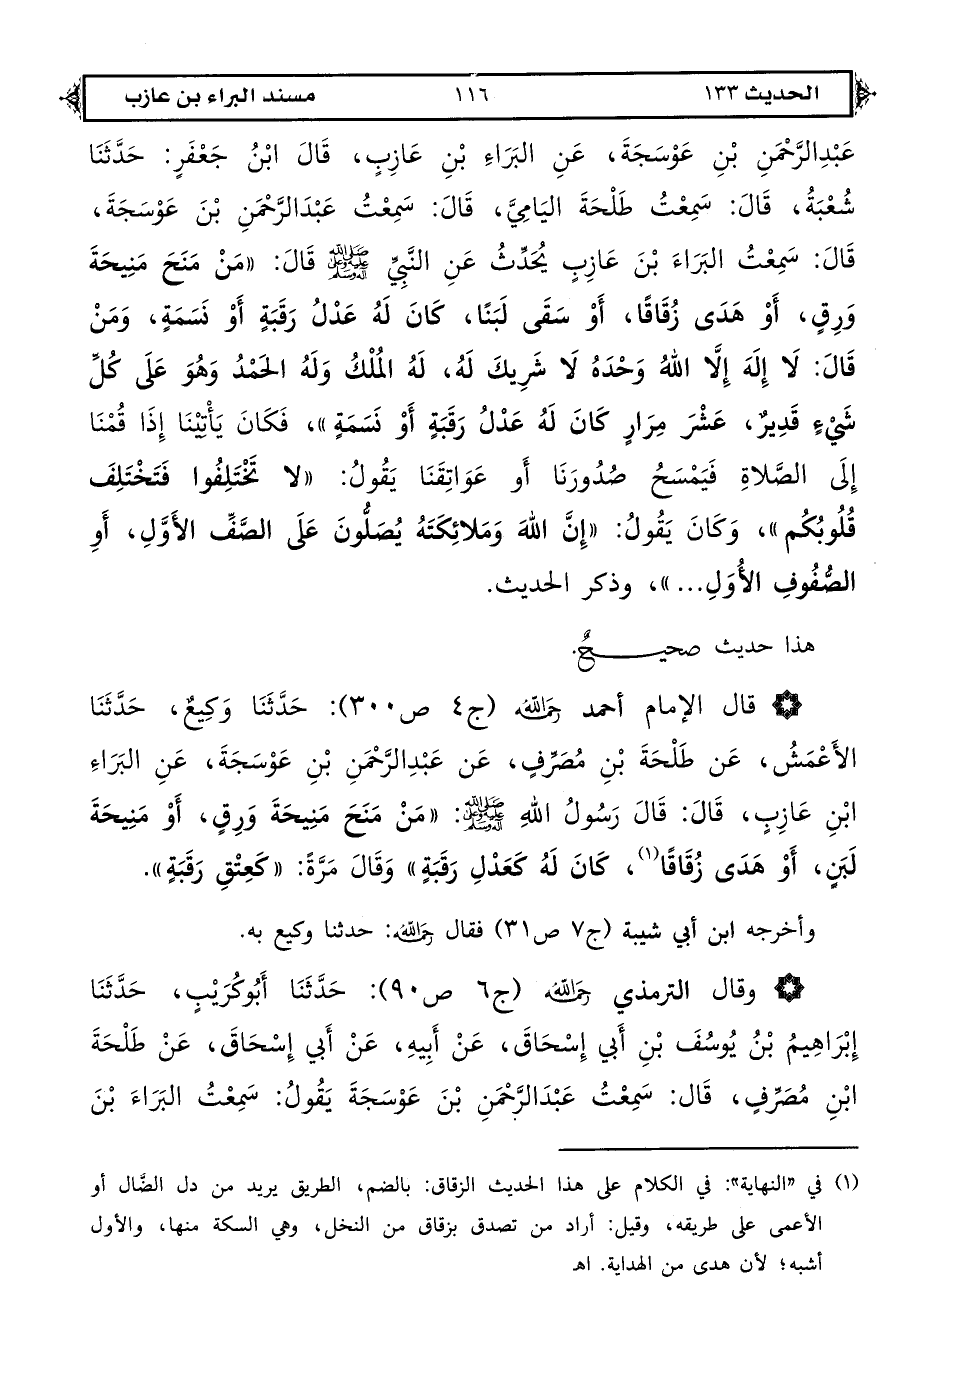 الحديث ١٣٣ ١١٦ مسند البراء بن عازب
عَبْدِالرَّحْمَنِ بْنِ عَوْسَجَةَ، عَنِ البَرَاءِ بْنِ عَازِبٍ، قَالَ ابْنُ جَعْفَرٍ: حَدَّثَنَا
شُعْبَةُ، قَالَ: سَمِعْتُ طَلْحَةَ اليَامِيَّ، قَالَ: سَمِعْتُ عَبْدَالرَّحْمَنِ بْنَ عَوْسَجَةَ،
قَالَ: سَمِعْتُ البَرَاءَ بْنَ عَازِبٍ يُحَدِّثُ عَنِ النَّبِيِّ ﷺ قَالَ: «مَنْ مَنَحَ مَنِيحَةَ
وَرِقٍ، أَوْ هَدَى زُقَاقًا، أَوْ سَقَى لَبَنًا، كَانَ لَهُ عَدْلُ رَقَبَةٍ أَوْ نَسَمَةٍ، وَمَنْ
قَالَ: لَا إِلَهَ إِلَّا اللهُ وَحْدَهُ لَا شَرِيكَ لَهُ، لَهُ المُلْكُ وَلَهُ الحَمْدُ وَهُوَ عَلَى كُلِّ
شَيْءٍ قَدِيرٌ، عَشْرَ مِرَارٍ كَانَ لَهُ عَدْلُ رَقَبَةٍ أَوْ نَسَمَةٍ»، فَكَانَ يَأْتِيْنَا إِذَا قُمْنَا
إِلَى الصَّلَاةِ فَيَمْسَحُ صُدُورَنَا أَو عَوَاتِقَنَا يَقُولُ: «لا تَخْتَلِفُوا فَتَخْتَلِفَ
قُلُوبُكُم»، وَكَانَ يَقُولُ: «إِنَّ اللهَ وَمَلائِكَتَهُ يُصَلُّونَ عَلَى الصَّفِّ الأَوَّلِ، أَوِ
الصُّفُوفِ الأُوَلِ...»، وذكر الحديث.
هذا حديث صحيحٌ.
قال الإمام أحمد رحمه الله (ج٤ ص٣٠٠): حَدَّثَنَا وَكِيعٌ، حَدَّثَنَا
الأَعْمَشُ، عَن طَلْحَةَ بْنِ مُصَرِّفٍ، عَن عَبْدِالرَّحْمَنِ بْنِ عَوْسَجَةَ، عَنِ البَرَاءِ
ابْنِ عَازِبٍ، قَالَ: قَالَ رَسُولُ اللهِ ﷺ: «مَنْ مَنَحَ مَنِيحَةَ وَرِقٍ، أَوْ مَنِيحَةَ
لَبَنٍ، أَوْ هَدَى زُقَاقًا(١)، كَانَ لَهُ كَعَدْلِ رَقَبَةٍ» وَقَالَ مَرَّةً: «كَعِتْقِ رَقَبَةٍ».
وأخرجه ابن أبي شيبة (ج٧ ص٣١) فقال رحمه الله: حدثنا وكيع به.
وقال الترمذي رحمه الله (ج٦ ص٩٠): حَدَّثَنَا أَبُوكُرَيْبٍ، حَدَّثَنَا
إِبْرَاهِيمُ بْنُ يُوسُفَ بْنِ أَبِي إِسْحَاقَ، عَنْ أَبِيهِ، عَنْ أَبِي إِسْحَاقَ، عَنْ طَلْحَةَ
ابْنِ مُصَرِّفٍ، قَال: سَمِعْتُ عَبْدَالرَّحْمَنِ بْنَ عَوْسَجَةَ يَقُولُ: سَمِعْتُ البَرَاءَ بْنَ
(١) في «النهاية»: في الكلام على هذا الحديث الزقاق: بالضم، الطريق يريد من دل الضَّال أو
الأعمى على طريقه، وقيل: أراد من تصدق بزقاق من النخل، وهي السكة منها، والأول
أشبه؛ لأن هدى من الهداية. اهـ